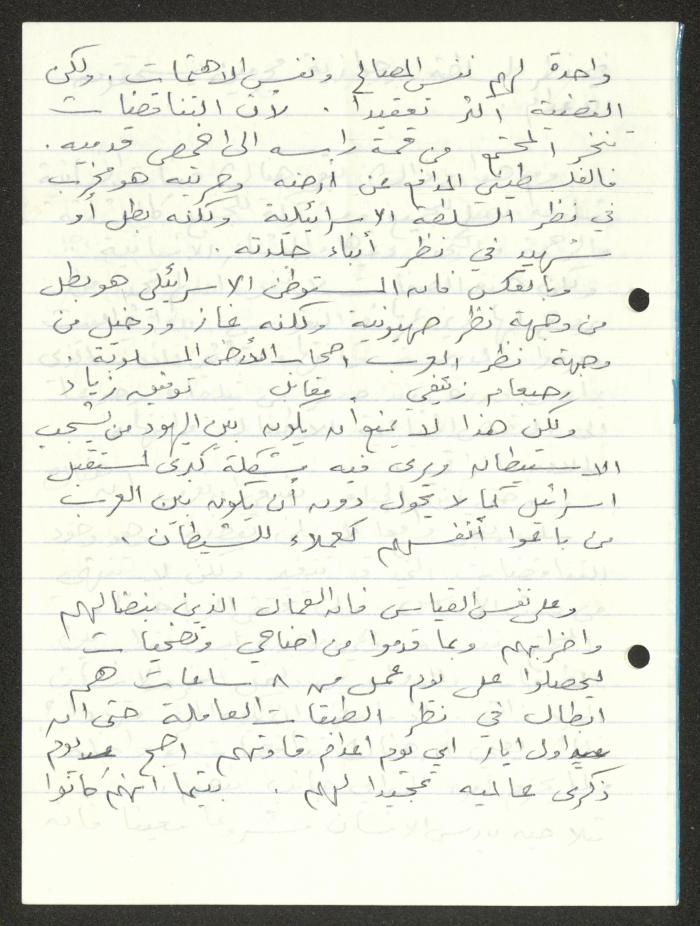 واحدة لهم نفس المصالح ونفس الاهتمامات. ولكن
القضية أكثر تعقيداً. لأن التناقضات
تنخر المجتمع من قمة راسه الى اخمص قدميه.
فالفلسطيني المدافع عن ارضه وحريته هو مخرب
في نظر السلطة الاسرائيلية ولكنه بطل أو
شهيد في نظر أبناء جلدته.
وبالعكس فان المستوطن الاسرائيلي هو بطل
من وجهة نظر صهيونية ولكنه غاز ودخيل من
وجهة نظر العرب اصحاب الأرض المسلوبة.
رحبعام زئيفي مقابل توفيق زياد
ولكن هذا لا يمنع ان يكون بين اليهود من يشجب
الاستيطان ويرى فيه مشكلة كبرى لمستقبل
اسرائيل كما لا يحول دون أن يكون بين العرب
من باعوا أنفسهم كعملاء للشيطان.
وعلى نفس القياس فان العمال الذين بنضالهم
واضرابهم وبما قدموا من اضاحي وتضحيات
ليحصلوا على يوم عمل من ٨ ساعات هم
ابطال في نظر الطبقات العاملة حتى ان
اول ايار اي يوم اعدام قادتهم اصبح يوم
ذكرى عالميه تمجيدا لهم. بينما انهم كانوا